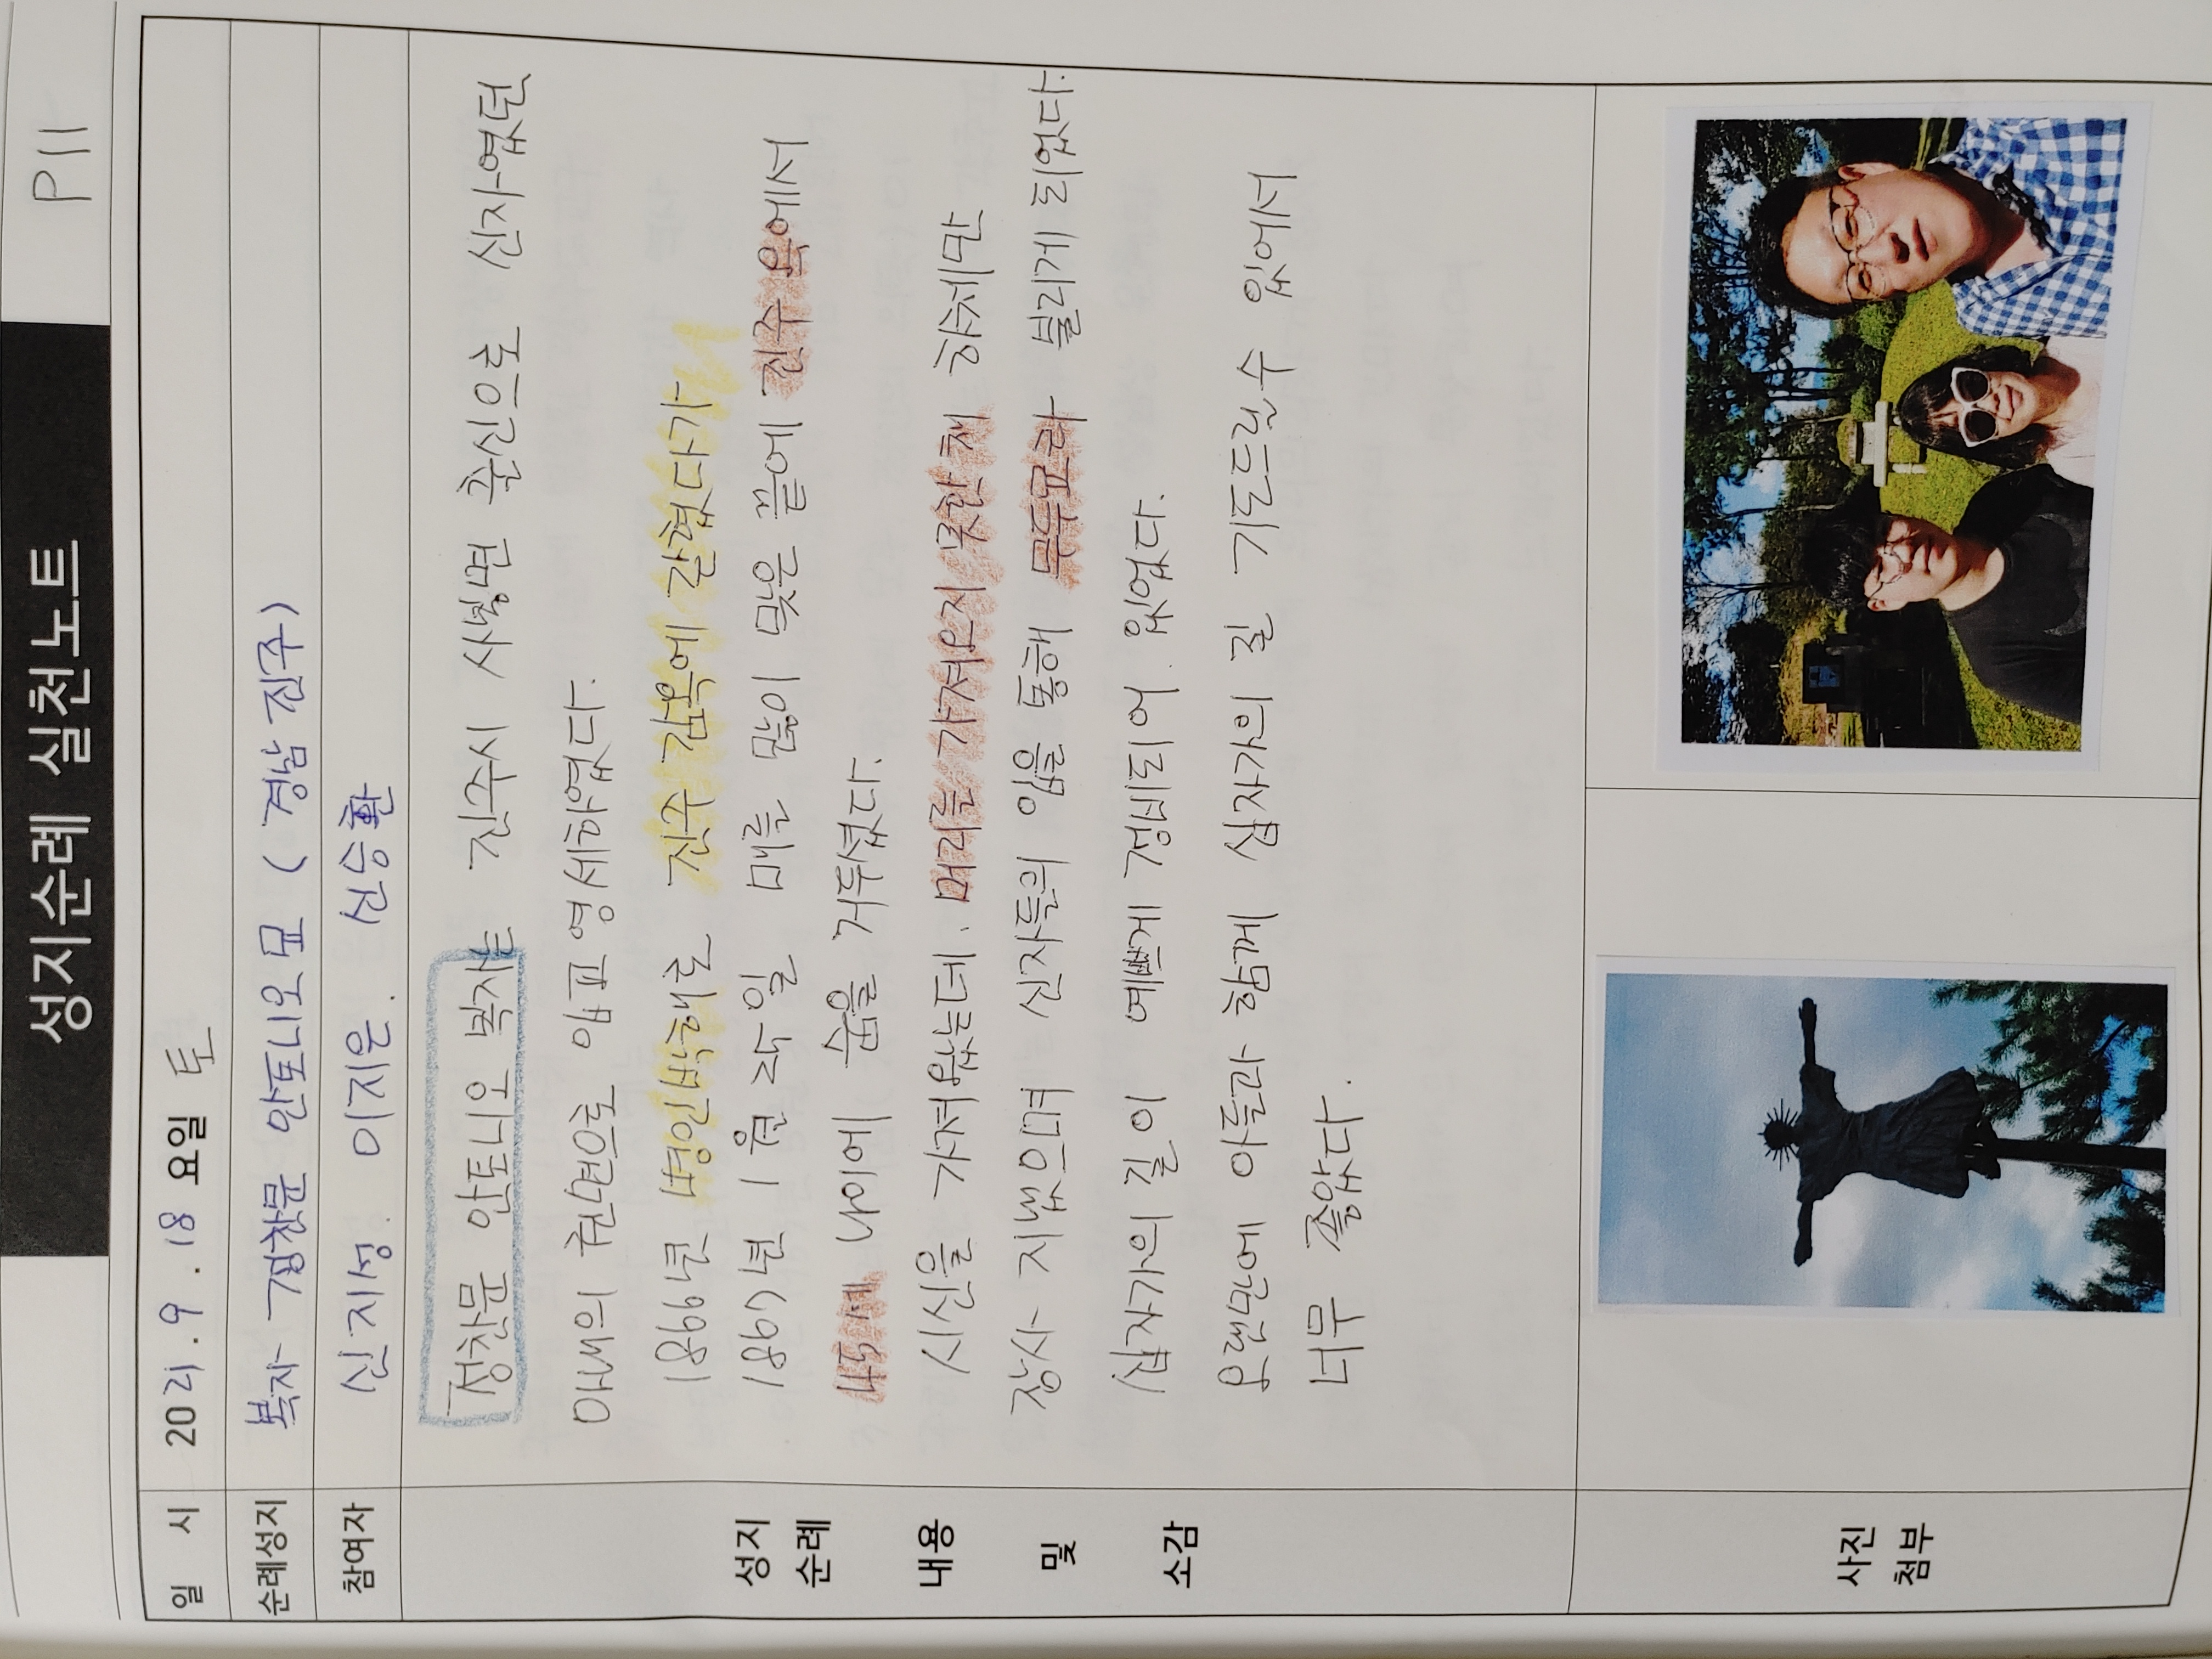 P11
성지순례 실천노트
일 시 2021. 9. 18 요일 토
순례성지 복자 정찬문 안토니오 묘 (경남 진주)
참여자 신지성. 이지은. 신승환
성지
순례
내용
및
소감
정찬문 안토니오 복자는 진주시 사봉면 출신으로 신자였던
아내의 권면으로 입교 영세하였다.
1866년 병인박해로 진주 감옥에 갇혔다가
1867년 1월 25일 매를 많이 맞은 끝에 진주 옥에서
45세 나이에 숨을 거두셨다.
시신을 가져왔는데. 머리를 가져오지 못한 채 하체만
장사 지냈으며 신자들의 입을 통해 무두묘라 불리게 되었다.
십자가의 길이 예쁘게 정비되어 있었다.
오랜만에 아들과 함께 십자가의 길 기도드릴수 있어서
너무 좋았다.
사진
첨부